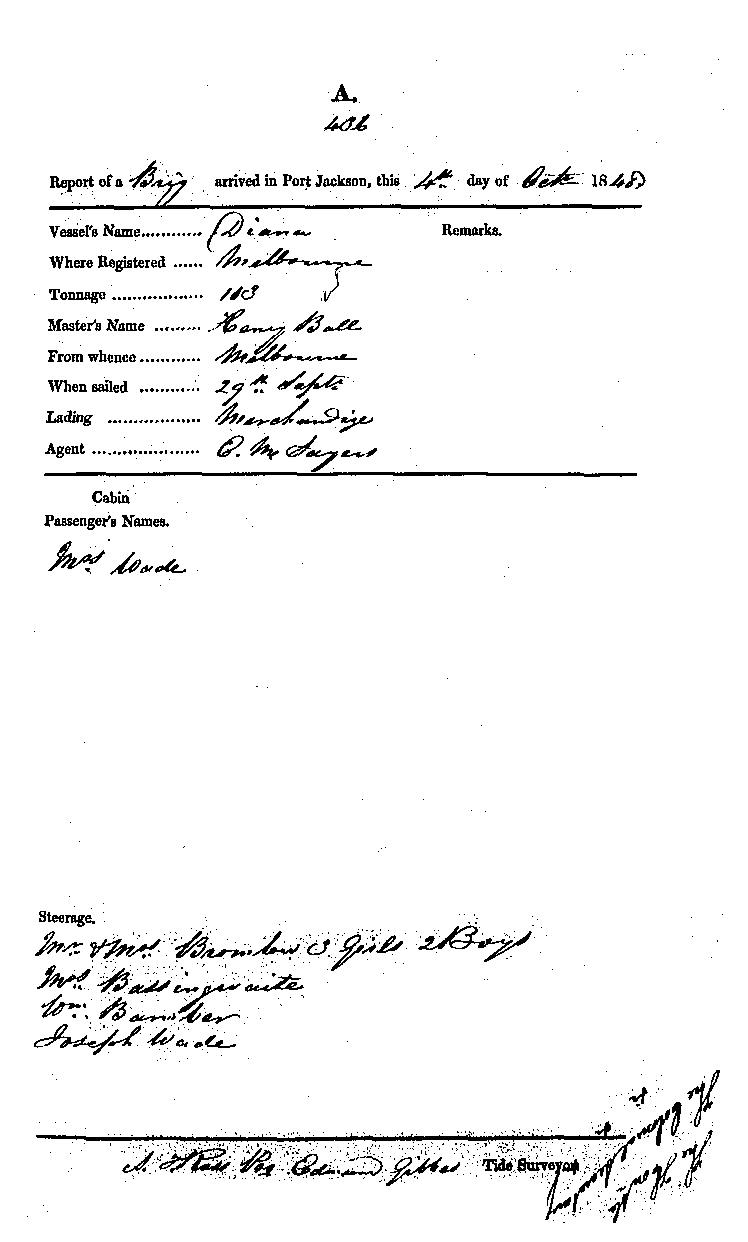 A.
406
Report of a Brig arrived in Port Jackson, this 4th day of Octr 1848
Vessel's Name............ Diana Remarks.
Where Registered ...... Melbourne
Tonnage .................. 103
Master's Name ......... Henry Ball
From whence............ Melbourne
When sailed ............ 29th Septr
Lading .................. Merchandize
Agent ..................... C. M Sayers
Cabin
Passenger's Names.
Mrs Wade
Steerage.
Mr & Mrs 3 Girls 2 Boys
Mrs Bassingwaite
Wm Bamber
Joseph Wade
Edward Gibbes Tide Surveyor
The Honble
The Colonial Secretary